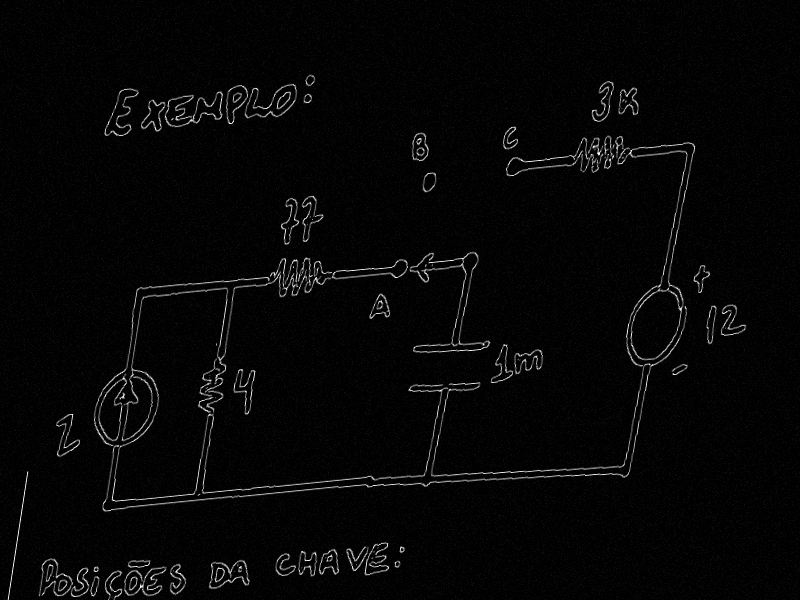 EXEMPLO:
3K
B
C
77
A
+
12
-
1m
4
2
POSIÇÕES DA CHAVE: